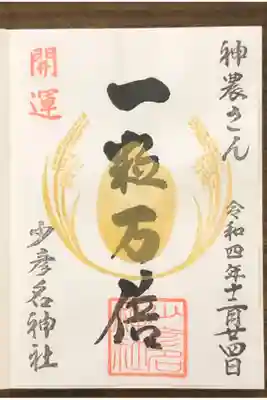 神農さん
令和四年十一月廿四日
一粒万倍
開運
少彦名神社